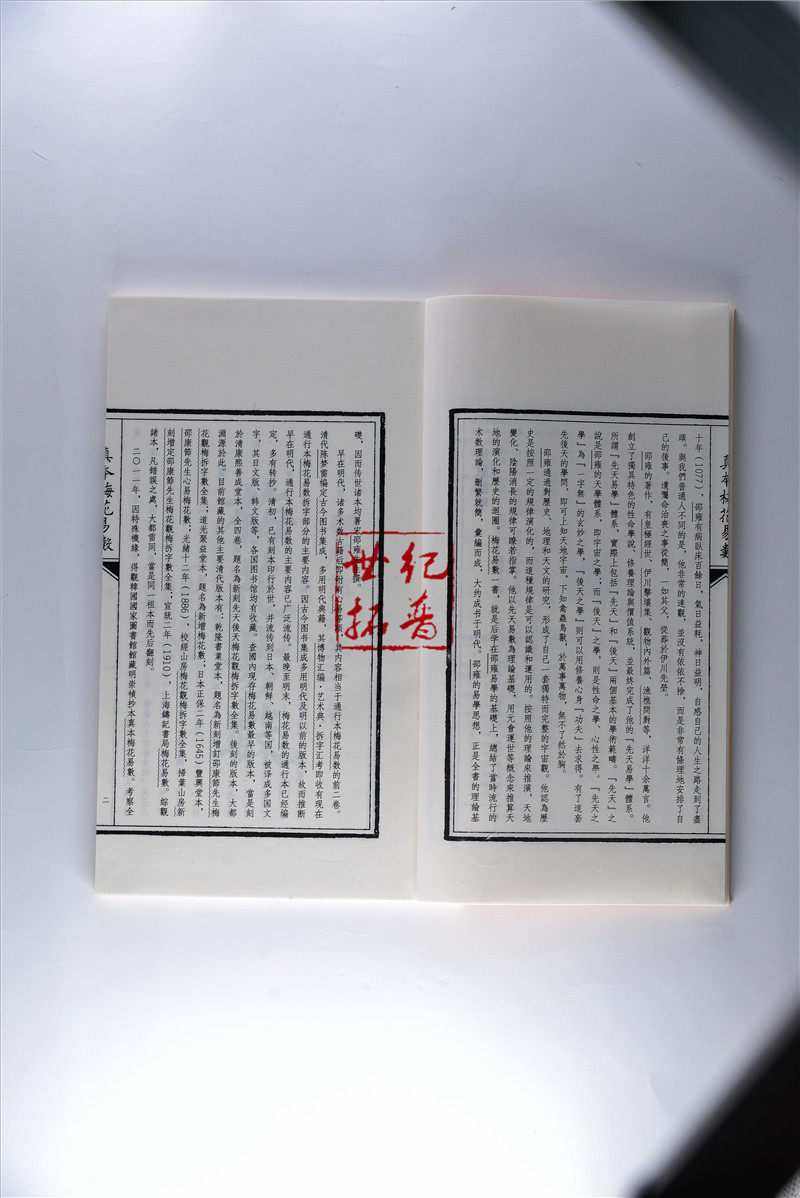 十年（1077），邵雍有病臥床百餘日，氣日益耗，神日益明，自感自己的人生之路走到了盡
頭。與我們普通人不同的是，他非常的達觀，並沒有依依不捨，而是非常有條理地安排了自
己的後事。遺囑命治喪之事從簡，一如其父，從葬於伊川先塋。
邵雍的著作，有皇極經世、伊川擊壤集、觀物內外篇、漁樵問對等，洋洋十余萬言。他
創立了獨具特色的性命學說、修養理論與價值系統，並最終完成了他的『先天易學』體系。
所謂『先天易學』體系，實際上包括『先天』和『後天』兩個基本的學術範疇。『先天』之
說是邵雍的天學體系，即宇宙之學；而『後天』之學，則是性命之學、心性之學。『先天之
學』為『一字無』的玄妙之學，『後天之學』則可以用修養心身『功夫』去求得。有了這套
先後天的學問，即可上知天地宇宙，下知禽蟲鳥獸，於萬事萬物，無不了然於胸。
邵雍通過對歷史、地理和天文的研究，形成了自己一套獨特而完整的宇宙觀。他認為歷
史是按照一定的規律演化的，而這種規律是可以認識和運用的。按照他的理論來推演，天地
變化、陰陽消長的規律可瞭若指掌。他以先天易數為理論基礎，用元會運世等概念來推算天
地的演化和歷史的迴圈。梅花易數一書，就是后学在邵雍易學的基礎上，總結了當時流行的
术数理論，刪繁就簡，彙编而成，大约成书于明代。邵雍的易學思想，正是全書的理論基
真本梅花易數
礎，因而传世诸本均署宋邵雍撰。
早在明代，诸多术数古籍后即附有心易等项，其内容相当于通行本梅花易数的前二卷。
清代陈梦雷编定古今图书集成，多用明代典籍，其博物汇编·艺术典·拆字汇考即收有现在
通行本梅花易数拆字部分的主要内容。因古今图书集成多用明代及明以前的版本，故而推断
早在明代，通行本梅花易数的主要内容已广泛流传。最晚至明末，梅花易数的通行本已经编
定，多有转抄。清初，已有刻本印行於世，并流传到日本、朝鲜、越南等国，被译成多国文
字，其日文版、韩文版等，各国图书馆均有收藏。查國內現存梅花易數最早的版本，當是刻
於清康熙善成堂本，全四卷，題名為新刻先天後天梅花觀梅拆字數全集。後刻的版本，大都
淵源於此。目前館藏的其他主要清代版本有，乾隆書業堂本，題名為新刻增訂邵康節先生梅
花觀梅拆字數全集；道光聚益堂本，題名為新增梅花數；日本正保二年（1645）豐興堂本，
邵康節先生心易梅花數；光緒十二年（1886），校經山房梅花觀梅拆字數全集，掃葉山房新
刻增定邵康節先生梅花觀梅拆字數全集，宣統二年（1910），上海鑄記書局梅花易數。綜觀
諸本，凡錯誤之處，大都雷同，當是同一祖本而先后翻刻。
二〇一一年，因特殊機緣，得觀韓國國家圖書館館藏明崇禎抄本真本梅花易數。考察全
真本梅花易數
二
世纪
拓普